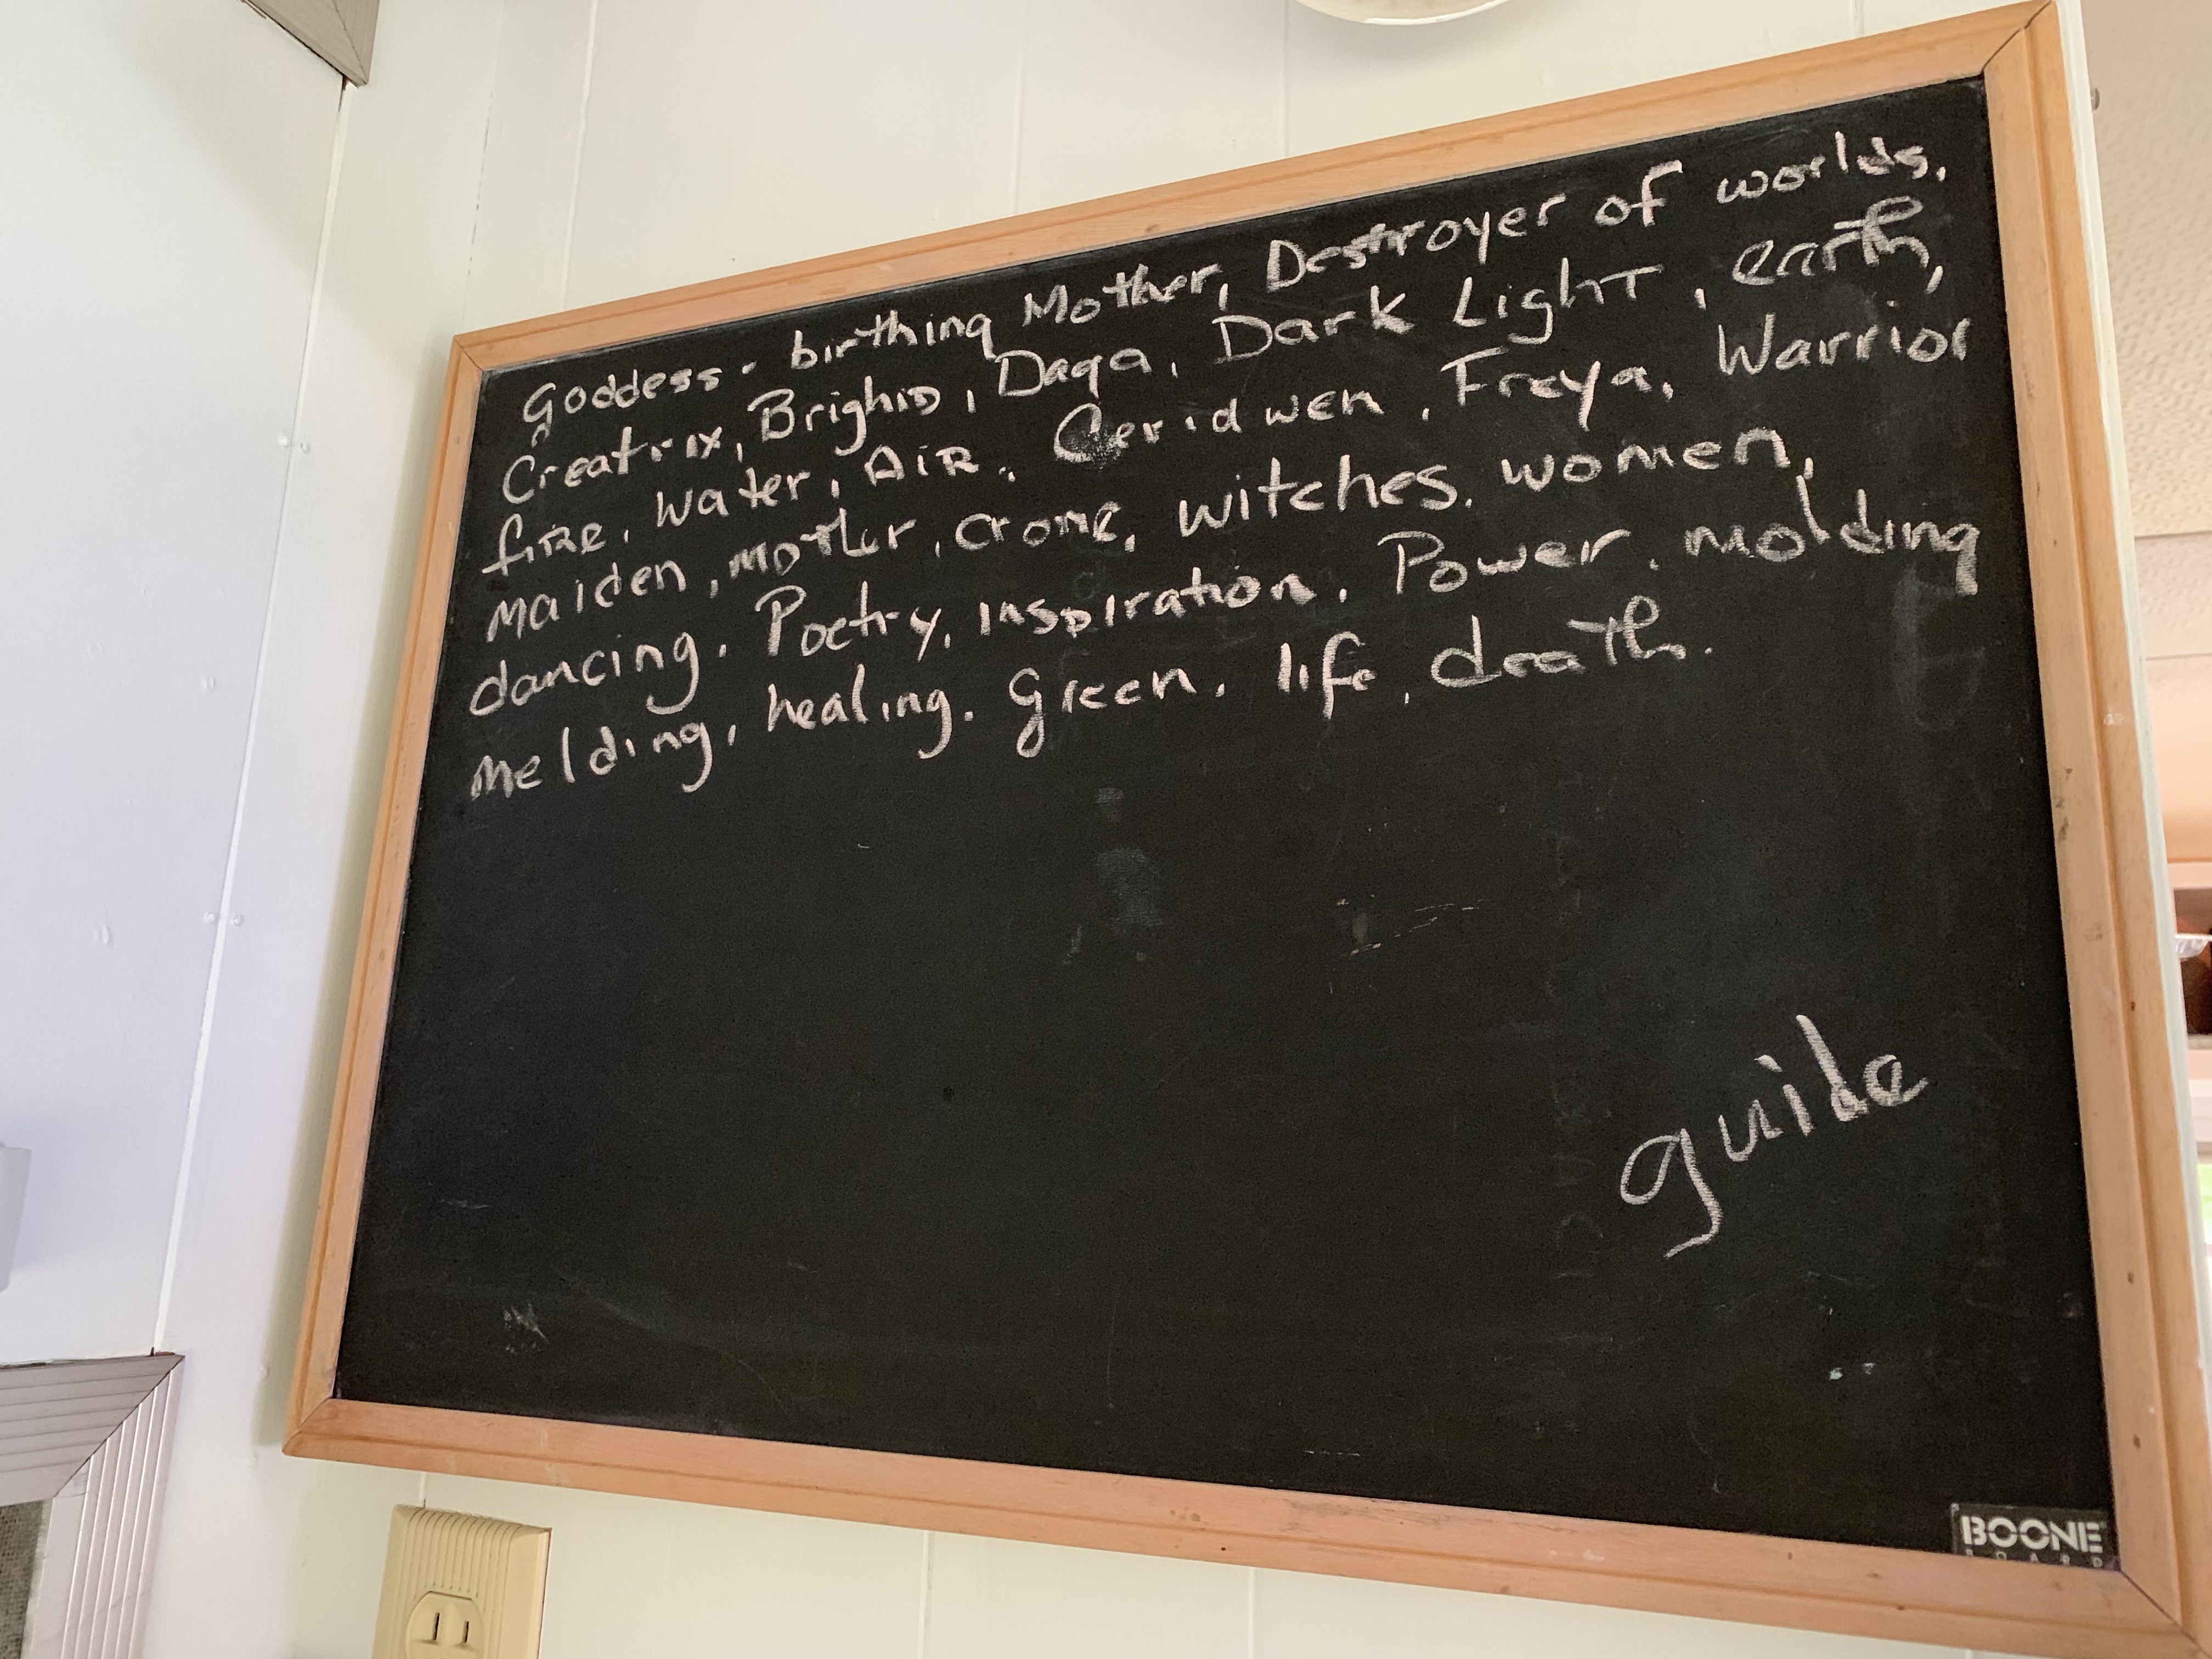 Goddess. birthing Mother, Destroyer of worlds.
Creatrix, Brighid, Daga, Dark Light, earth,
fire, water, AiR. Ceridwen, Freya, Warrior
Maiden, mother, crone, witches. women,
dancing. Poetry, inspiration. Power. molding
melding, healing. green. life, death.
guide
BOONE
BOARD